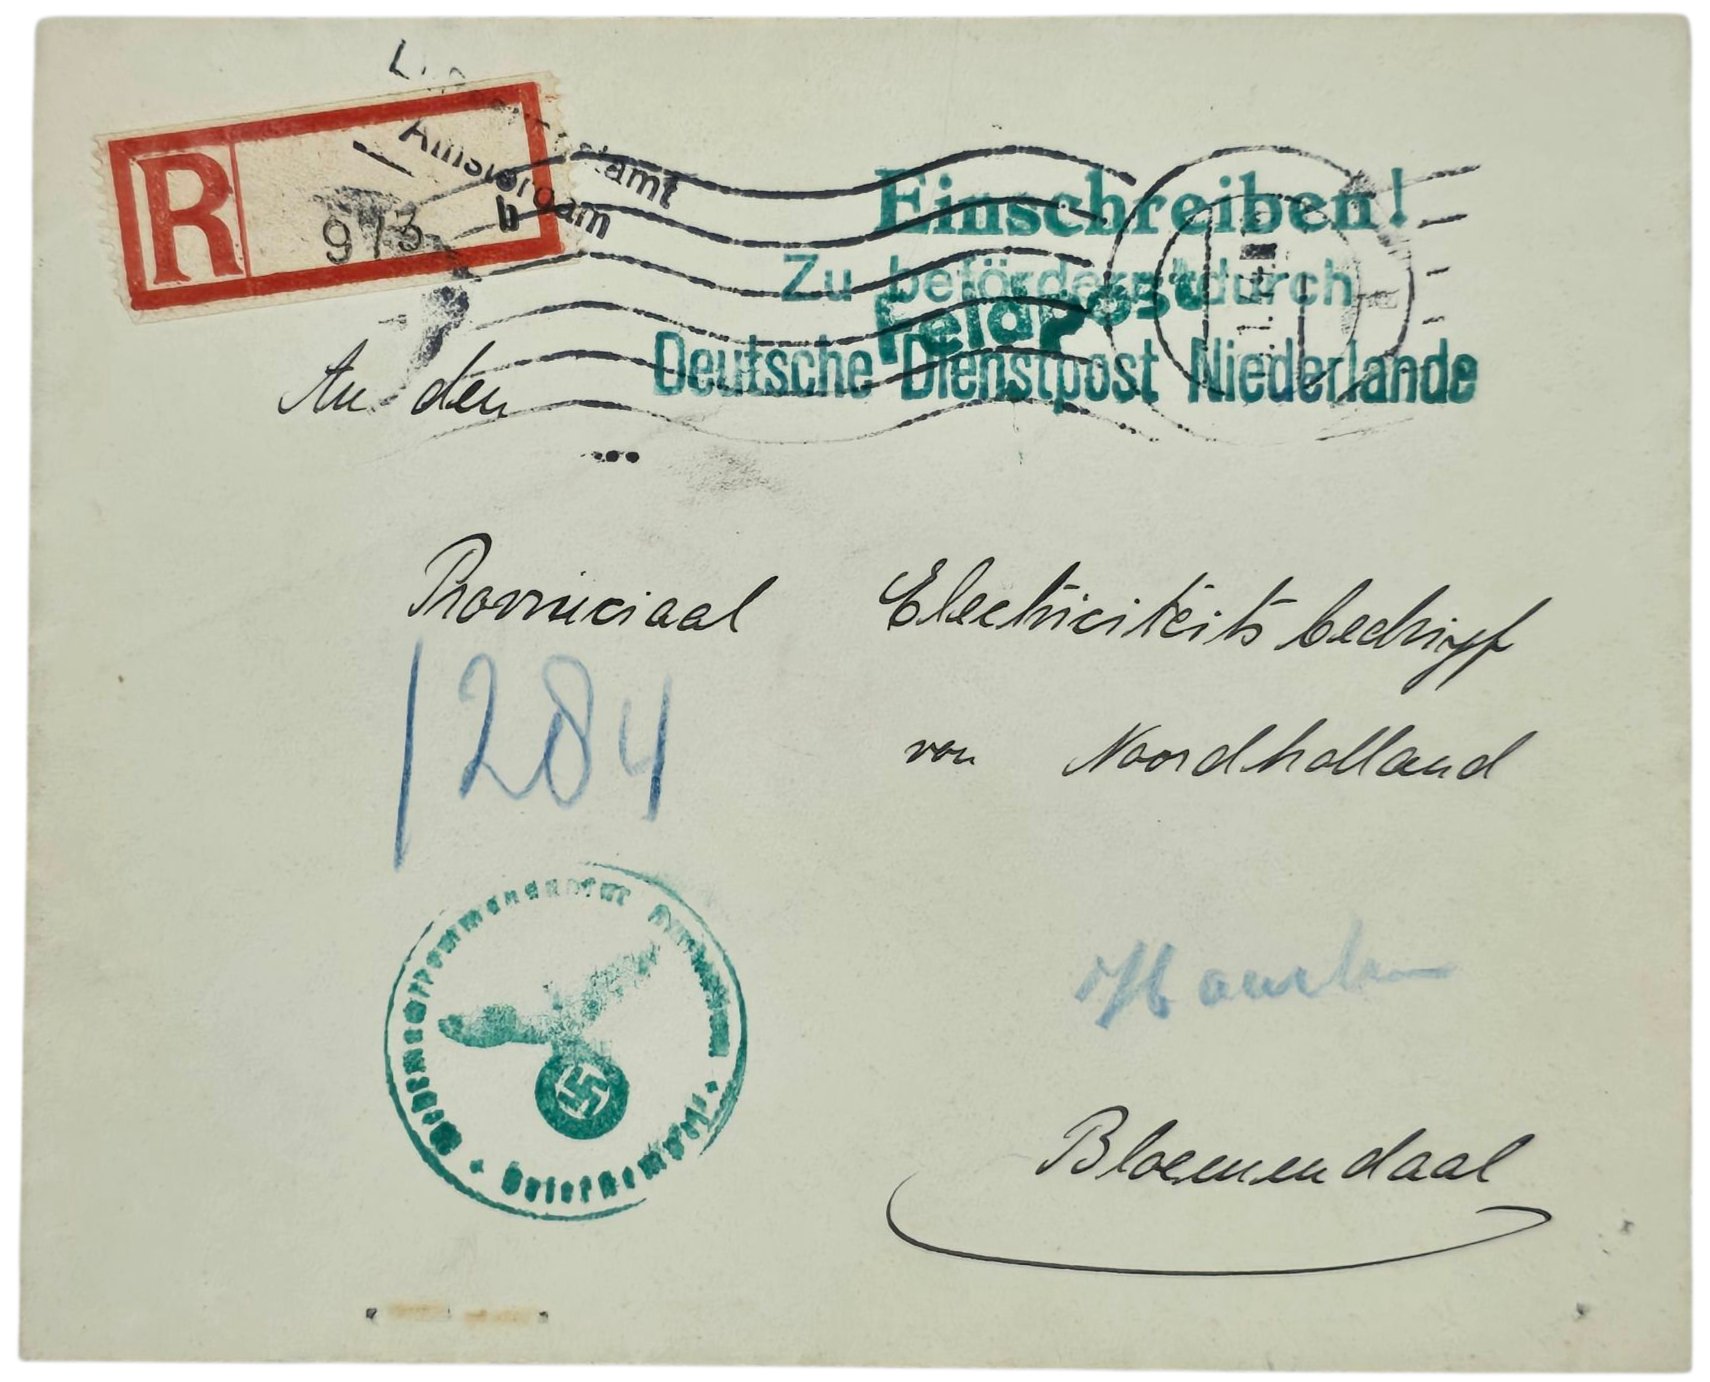 R
973
Amsterdam
b
Einschreiben!
Zu befördern durch
Feldpost
Deutsche Dienstpost Niederlande
An den
Provinciaal Electriciteits bedrijf
1284
van Noordholland
Haarlem
Bloemendaal
Briefstempel